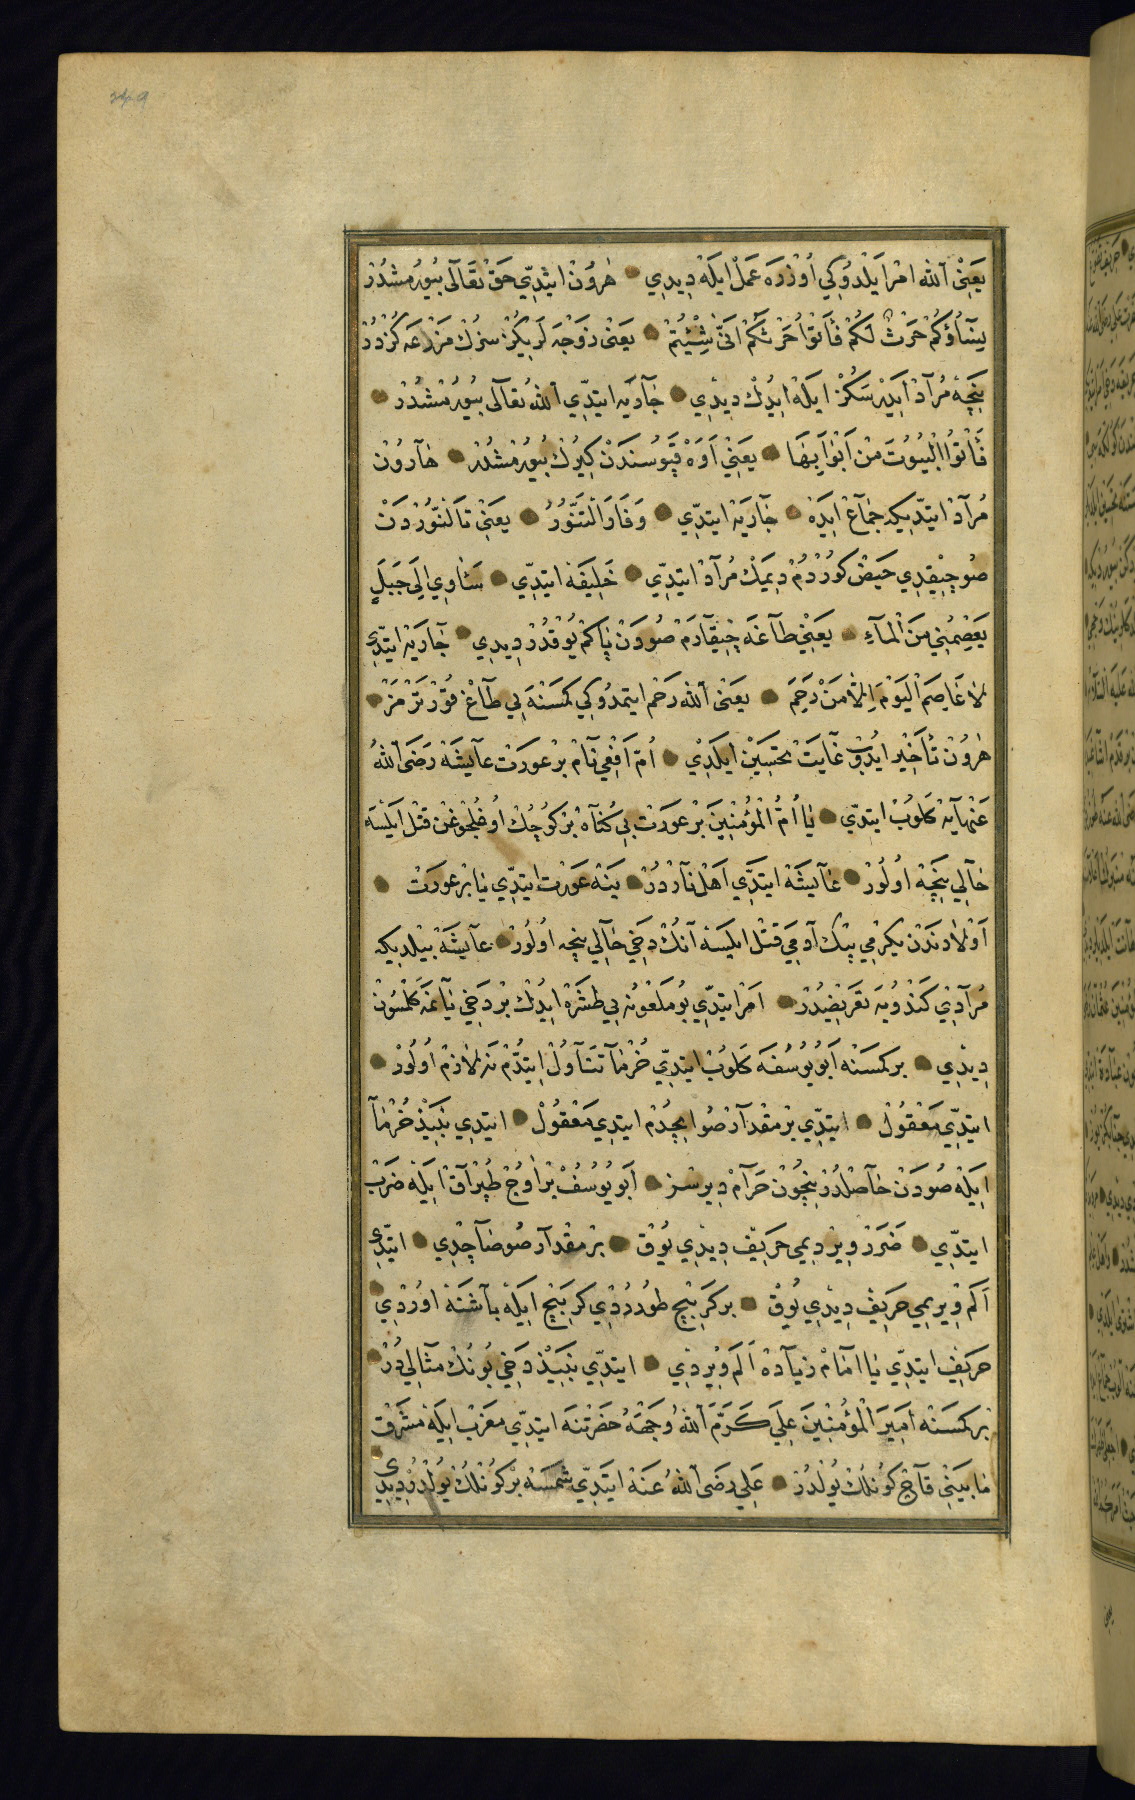 يَعْنِي اَللّٰه اَمْر اَيْلَدُوكِي اُوزْرَه عَمَلْ ايلَه دِيدِي ۞ هٰرُونْ ايتْدِي حَقْ تَعَالٰى بُيُورْمُشْدُرْ
نِسَآؤُكُمْ حَرْثٌ لَكُمْ فَأْتُوا حَرْثَكُمْ اَنّٰى شِئْتُمْ ۞ يَعْنِي زَوْجَه لَرِيكُزْ سِزُكْ مَزْرَعَه كُزْدُرْ
نِيجَه مُرَادْ ايدَرْسَكُزْ ايلَه ايدُكْ دِيدِي ۞ جَارِيَه ايتْدِي اَللّٰه تَعَالٰى بُيُورْمُشْدُرْ ۞
فَأْتُوا الْبُيُوتَ مِنْ اَبْوَابِهَا ۞ يَعْنِي اَوَه قَپُوسُنْدَنْ كِيرُكْ بُيُورْمُشْدُرْ ۞ هَارُونْ
مُرَادْ ايتْدِيكِه جِمَاعْ ايدَه ۞ جَارِيَه ايتْدِي ۞ وَفَارَ التَّنُّورُ ۞ يَعْنِي تَا تَنُّورْدَنْ
صُو چِيقْدِي حَيْضْ كُورْدُمْ دِيمَكْ مُرَادْ ايتْدِي ۞ خَلِيفَه ايتْدِي ۞ سَاٰوِي اِلَى جَبَلٍ
يَعْصِمُنِي مِنَ الْمَاءِ ۞ يَعْنِي طَاغَه چِيقَارَمْ صُودَنْ بَاكَمْ يُوقْدُرْ دِيدِي ۞ جَارِيَه ايتْدِي
لَا عَاصِمَ الْيَوْمَ اِلَّا مَنْ رَحِمَ ۞ يَعْنِي اَللّٰه رَحْم ايتْمَدُوكِي كِمْسَنَه يِي طَاغْ قُورْتَرْمَزْ ۞
هٰرُونْ تَأْخِير ايدُوبْ غَايَتْ تَحْسِينْ ايلَدِي ۞ اُمِّ اَفْعِي نَامْ بِرْ عَوْرَتْ عَايِشَه رَضِيَ اللّٰهُ
عَنْهَايَه كَلُوبْ ايتْدِي ۞ يَا اُمَّ الْمُؤْمِنِينَ بِرْ عَوْرَتْ بِي كُنَاهْ بِرْ كُوچُكْ اُوغْلَنْجُوغِنْ قَتْل ايلَسَه
حَالِي نِيجَه اُولُورْ ۞ عَايِشَه ايتْدِي اَهْلِ نَارْدُرْ ۞ يِنَه عَوْرَتْ ايتْدِي يَا بِرْ عَوْرَتْ ۞
اَوْلَادِنْدَنْ يِكِرْمِي بِيكْ آدَمِي قَتْل ايلَسَه آنُكْ دَخِي حَالِي نِيجَه اُولُورْ ۞ عَايِشَه بِيلْدِيكِه
مُرَادِي كَنْدُويَه تَعْرِيضِدُرْ ۞ اَمْر ايتْدِي بُو مَلْعُونَه يِي طَشْرَه ايدُكْ بِرْ دَخِي يَانُمَه كَلْمَسُونْ
دِيدِي ۞ بِرْ كِمْسَنَه اَبُو يُوسُفَه كَلُوبْ ايتْدِي خُرْمَا تَنَاوُلْ ايتْدُمْ نَه لَازِمْ اُولُورْ ۞
ايتْدِي مَعْقُولْ ۞ ايتْدِي بِرْ مِقْدَارْ صُو ايچْدُمْ ايتْدِي مَعْقُولْ ۞ ايتْدِي نَبِيذْ خُرْمَا
ايلَه صُودَنْ حَاصِلْدُرْ نِيچُونْ حَرَامْ دِيرْسِزْ ۞ اَبُو يُوسُفْ بِرْ اَوُجْ طُپْرَاقْ ايلَه ضَرَبْ
ايتْدِي ۞ ضَرَرْ وِيرْدِيمِي حَرِيفْ دِيدِي يُوقْ ۞ بِرْ مِقْدَارْ صُو صَاچْدِي ۞ ايتْدِي
اَلَمْ وِيرِيمِي حَرِيفْ دِيدِي يُوقْ ۞ بِرْ كَرْپِيچْ طُورُرْدِي كَرْپِيچْ ايلَه بَاشِنَه اُورْدِي
حَرِيفْ ايتْدِي يَا اِمَامْ زِيَادَه اَلَمْ وِيرْدِي ۞ ايتْدِي نَبِيذْ دَخِي بُونُكْ مِثَالِيدُرْ
بِرْ كِمْسَنَه اَمِيرَ الْمُؤْمِنِينَ عَلِي كَرَّمَ اَللّٰهُ وَجْهَهُ حَضْرَتْنَه ايتْدِي مَغْرِبْ ايلَه مَشْرِقْ
مَابَيْنِي قَاچْ كُونْلُكْ يُولْدُرْ ۞ عَلِي رَضِيَ اللّٰهُ عَنْهُ ايتْدِي شَمْسَه بِرْ كُونْلُكْ يُولْدُرْ دِيدِي